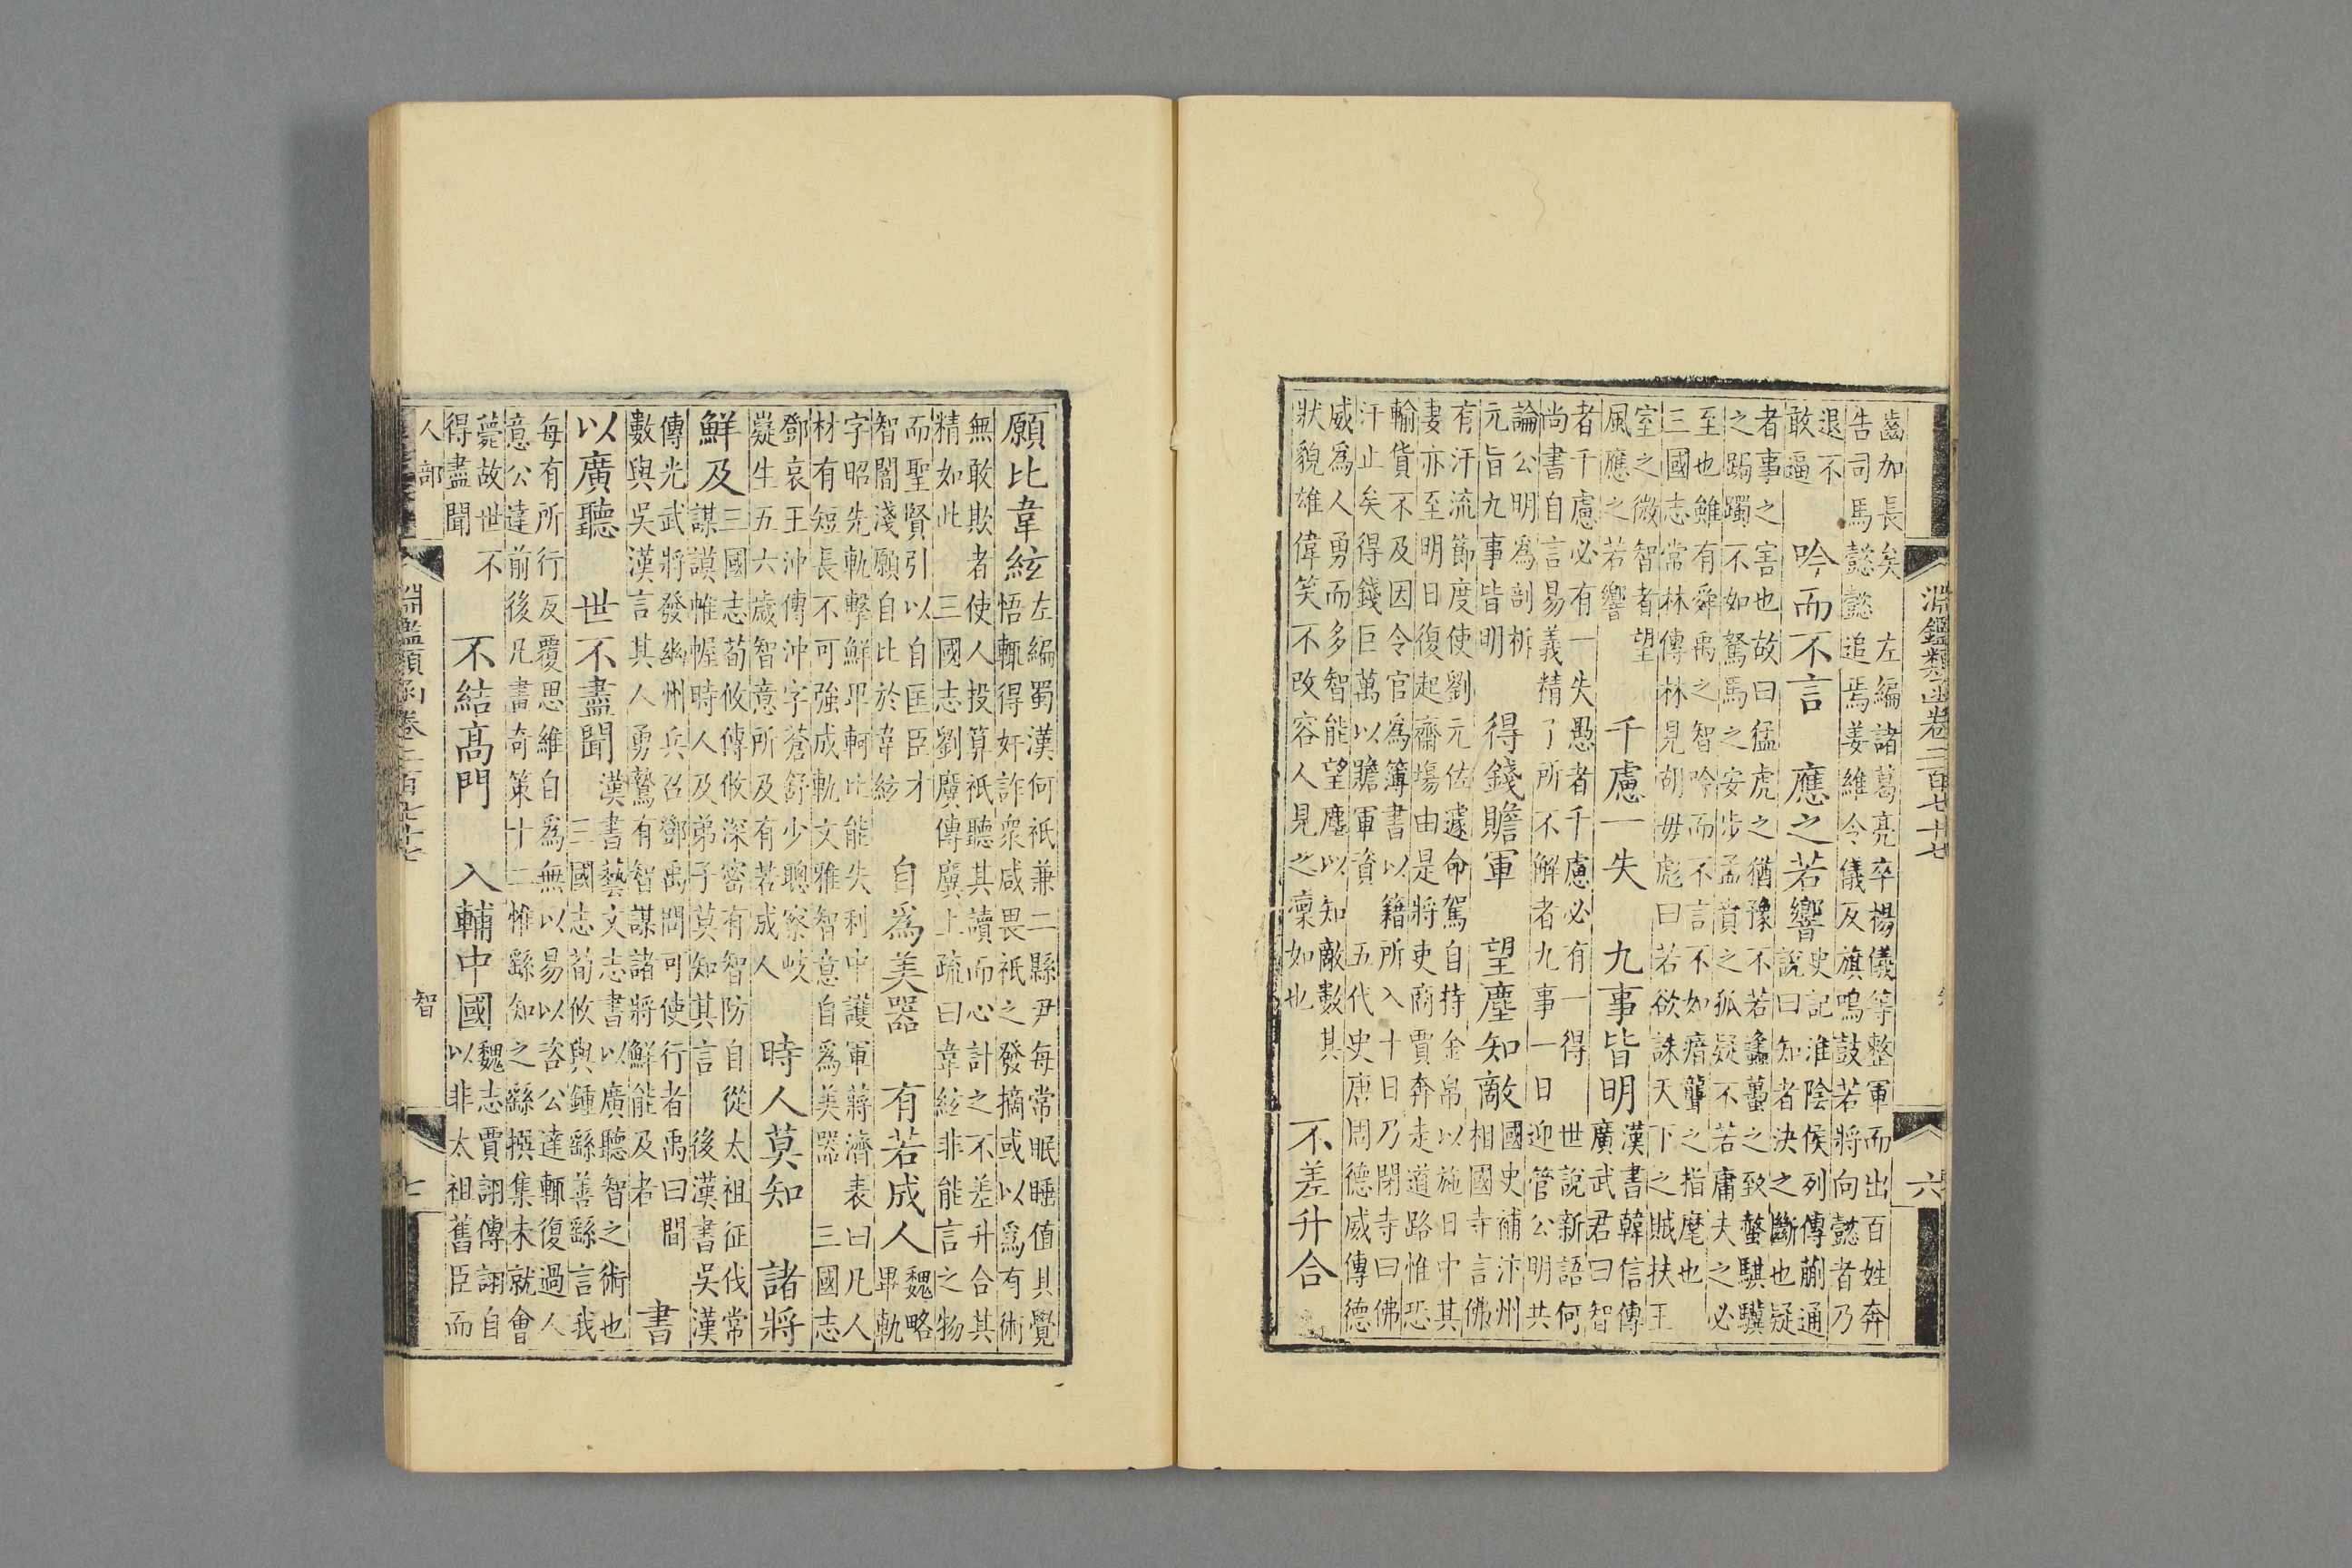 淵鑑類函卷二百七十七
六
齒加長矣 左編諸葛亮卒楊儀等整軍而出百姓奔
告司馬懿懿追焉姜維令儀反旗鳴鼓若將向懿者乃
退不
敢逼
吟而不言 應之若響
史記淮陰侯列傳蒯通
說曰知者決之斷也疑
者事之害也故曰猛虎之猶豫不若蠭蠆之致螫騏驥
之跼躅不如駑馬之安步孟賁之狐疑不若庸夫之必
至也雖有舜禹之智吟而不言不如瘖聾之指麾也
三國志常林傳林見胡毋彪曰若欲誅天下之賊扶王
室之微智者望
風應之若響
千慮一失 九事皆明
漢書韓信傳
廣武君曰智
者千慮必有一失愚者千慮必有一得 世說新語何
尚書自言易義精了所不解者九事一日迎管公明共
論公明爲剖析
元旨九事皆明
得錢贍軍 望塵知敵
國史補汴州
相國寺言佛
有汗流節度使劉元佐遽命駕自持金帛以施日中其
妻亦至明日復起齋場由是將吏商賈奔走道路惟恐
輸貨不及因令官爲簿書以籍所入十日乃閉寺曰佛
汗止矣得錢巨萬以贍軍資 五代史唐周德威傳德
威爲人勇而多智能望塵以知敵數其
狀貌雄偉笑不改容人見之凜如也
不差升合
願比韋絃
左編蜀漢何祇兼二縣尹每常眠睡值其覺
悟輒得奸詐衆咸畏祇之發摘或以爲有術
無敢欺者使人投算祇聽其讀而心計之不差升合其
精如此 三國志劉廙傳廙上疏曰韋絃非能言之物
而聖賢引以自匡臣才
智闇淺願自比於韋絃
自爲美器 有若成人
魏略
畢軌
字昭先軌擊鮮卑軻比能失利中護軍蔣濟表曰凡人
材有短長不可強成軌文雅智意自爲美器 三國志
鄧哀王沖傳沖字蒼舒少聰察岐
嶷生五六歲智意所及有若成人
時人莫知 諸將
鮮及
三國志荀攸傳攸深密有智防自從太祖征伐常
謀謨帷幄時人及弟子莫知其言 後漢書吳漢
傳光武將發幽州兵召鄧禹問可使行者禹曰間
數與吳漢言其人勇鷙有智謀諸將鮮能及者
書
以廣聽 世不盡聞
漢書藝文志書以廣聽智之術也
三國志荀攸與鍾繇善繇言我
每有所行反覆思維自爲無以易以咨公達輒復過人
意公達前後凡畫奇策十二惟繇知之繇撰集未就會
薨故世不
得盡聞
不結高門 入輔中國
魏志賈詡傳詡自
以非太祖舊臣而
人部
智
淵鑑類函卷二百七十七
七